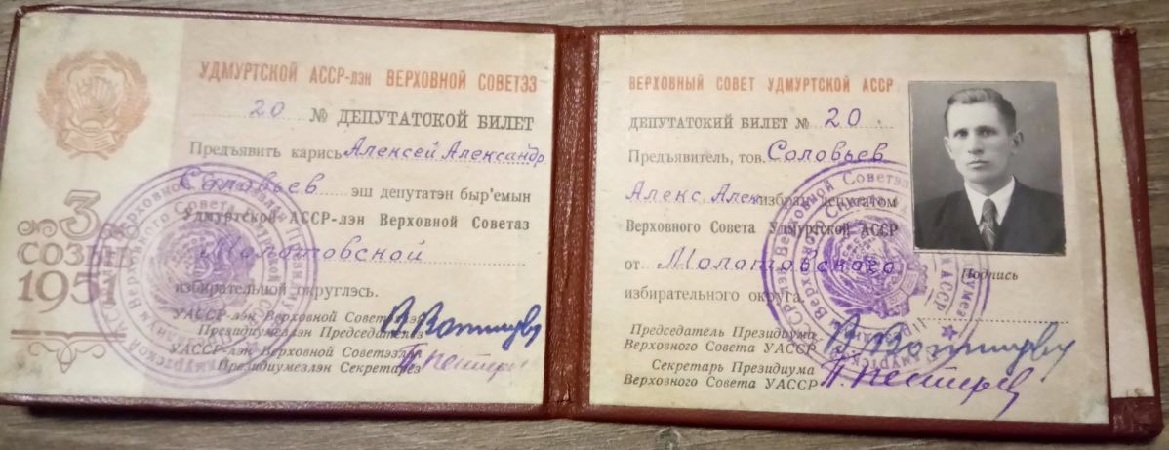 УДМУРТСКОЙ АССР-лэн ВЕРХОВНОЙ СОВЕТЭЗ
20 № ДЕПУТАТСКОЙ БИЛЕТ
Предъявить карись Алексей Александр
Соловьев эш депутатэн быр'емын
Удмуртской АССР-лэн Верховной Советаз
Молотовской
избирательной округлэсь.
УАССР-лэн Верховной Советэзлэн
Президиумезлэн Председателез
УАССР-лэн Верховной Советэзлэн
Президиумезлэн Секретарез
3
СОЗЫВ
1951
ВЕРХОВНЫЙ СОВЕТ УДМУРТСКОЙ АССР
ДЕПУТАТСКИЙ БИЛЕТ № 20
Предъявитель, тов. Соловьев
Алекс Алек избран депутатом
Верховного Совета Удмуртской АССР
от Молотовского
избирательного округа.
Председатель Президиума
Верховного Совета УАССР
Секретарь Президиума
Верховного Совета УАССР
Подпись